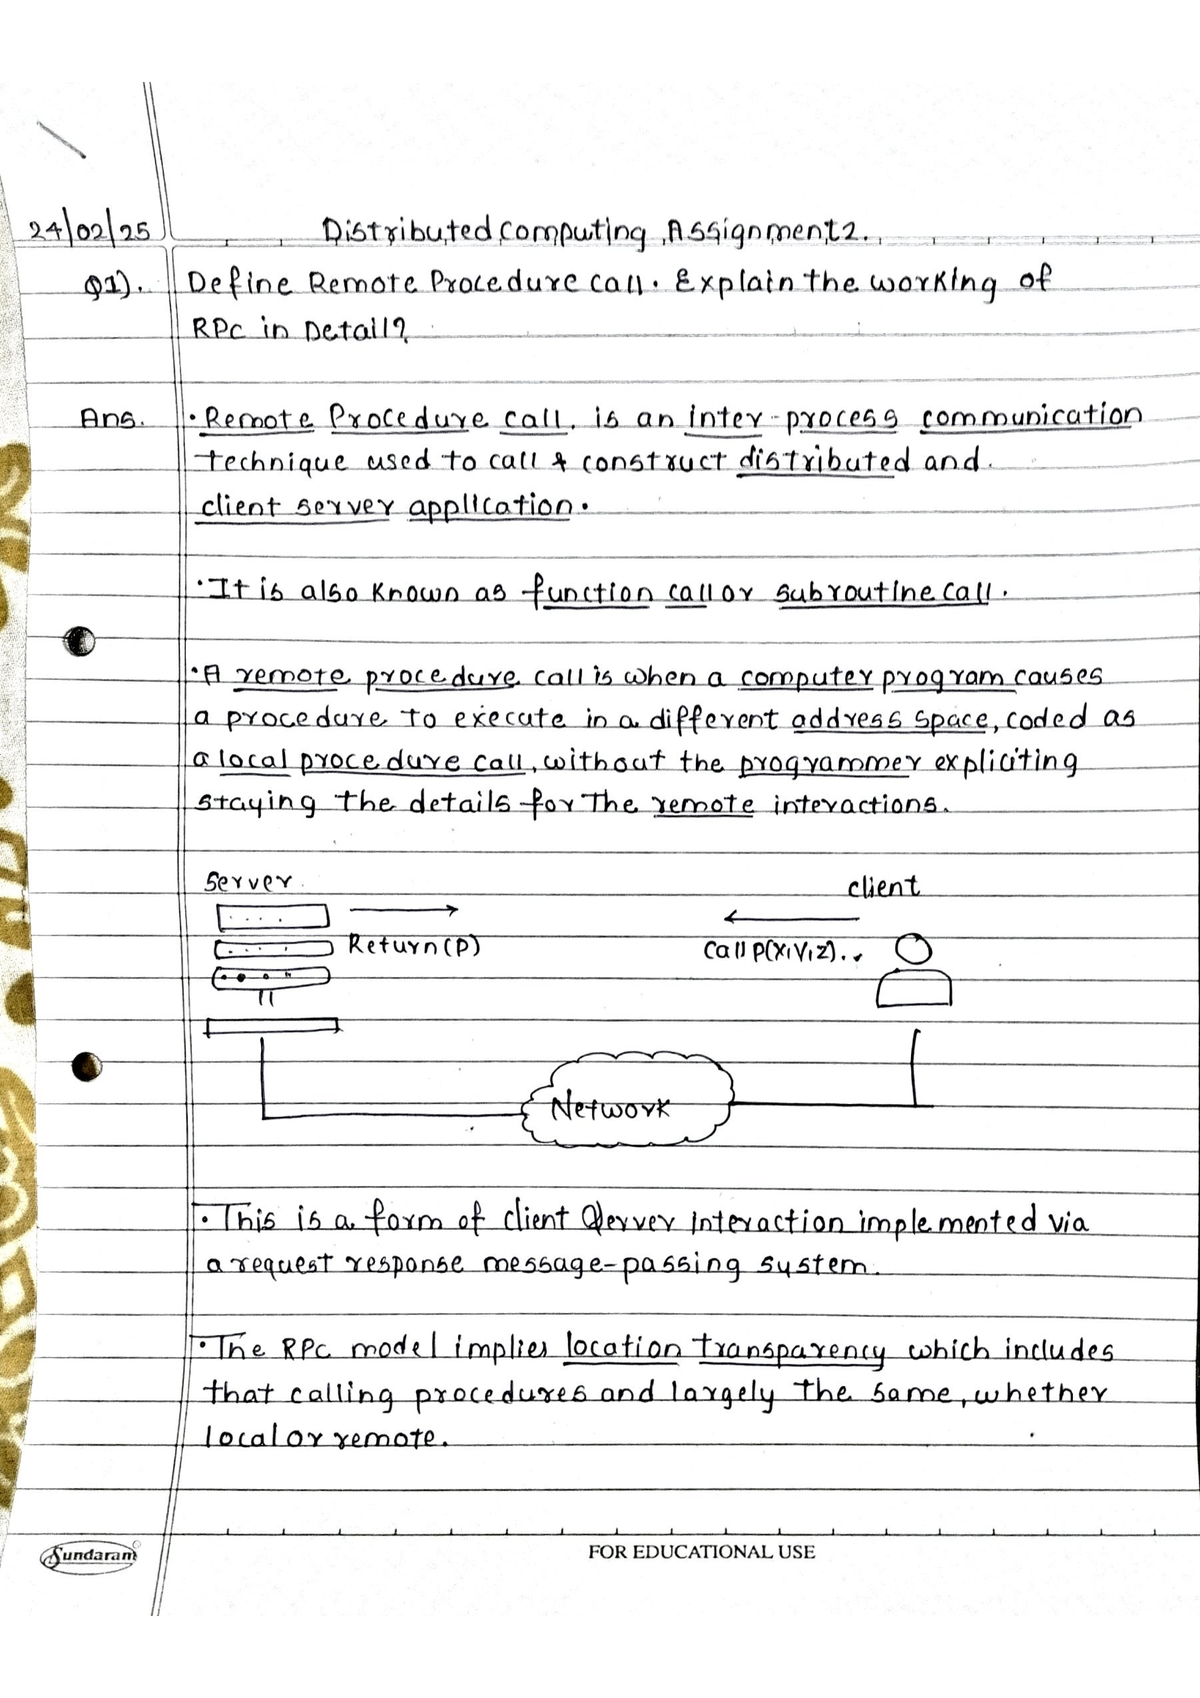 24/02/25 Distributed Computing Assignment 2.
Q1). Define Remote Procedure call. Explain the working of
RPC in Detail?
Ans. • Remote Procedure call, is an inter-process communication
technique used to call & construct distributed and
client server application.
• It is also known as function call or subroutine call.
• A remote procedure call is when a computer program causes
a procedure to execute in a different address space, coded as
a local procedure call, without the programmer expliciting
staying the details for the remote interactions.
Server client
Return(P) Call P(X,Y,Z)..
Network
• This is a form of client server interaction implemented via
a request response message-passing system.
• The RPC model implies location transparency which includes
that calling procedures and largely the same, whether
local or remote.
Sundaram FOR EDUCATIONAL USE